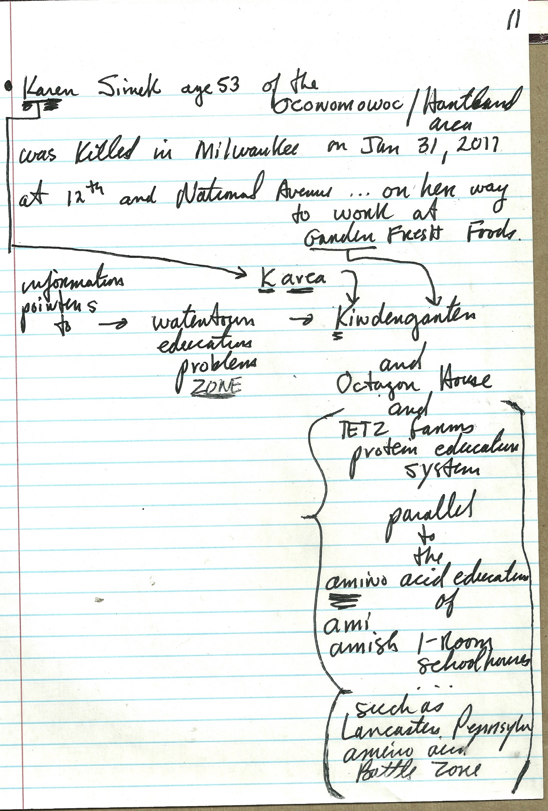 11
• Karen Simek age 53 of the
Oconomowoc / Hartland
area
was killed in Milwaukee on Jan 31, 2011
at 12th and National Avenue ... on her way
to work at
Garden Fresh Foods.
K area
information
pointers
to → watertown → Kindergarten
education
problem
ZONE
and
Octagon House
and
TETZ farms
protein education
system
parallel
to
the
amino acid education
of
ami
amish 1-Room
schoolhouses
...
such as
Lancaster, Pennsylv
amino acid
Battle Zone